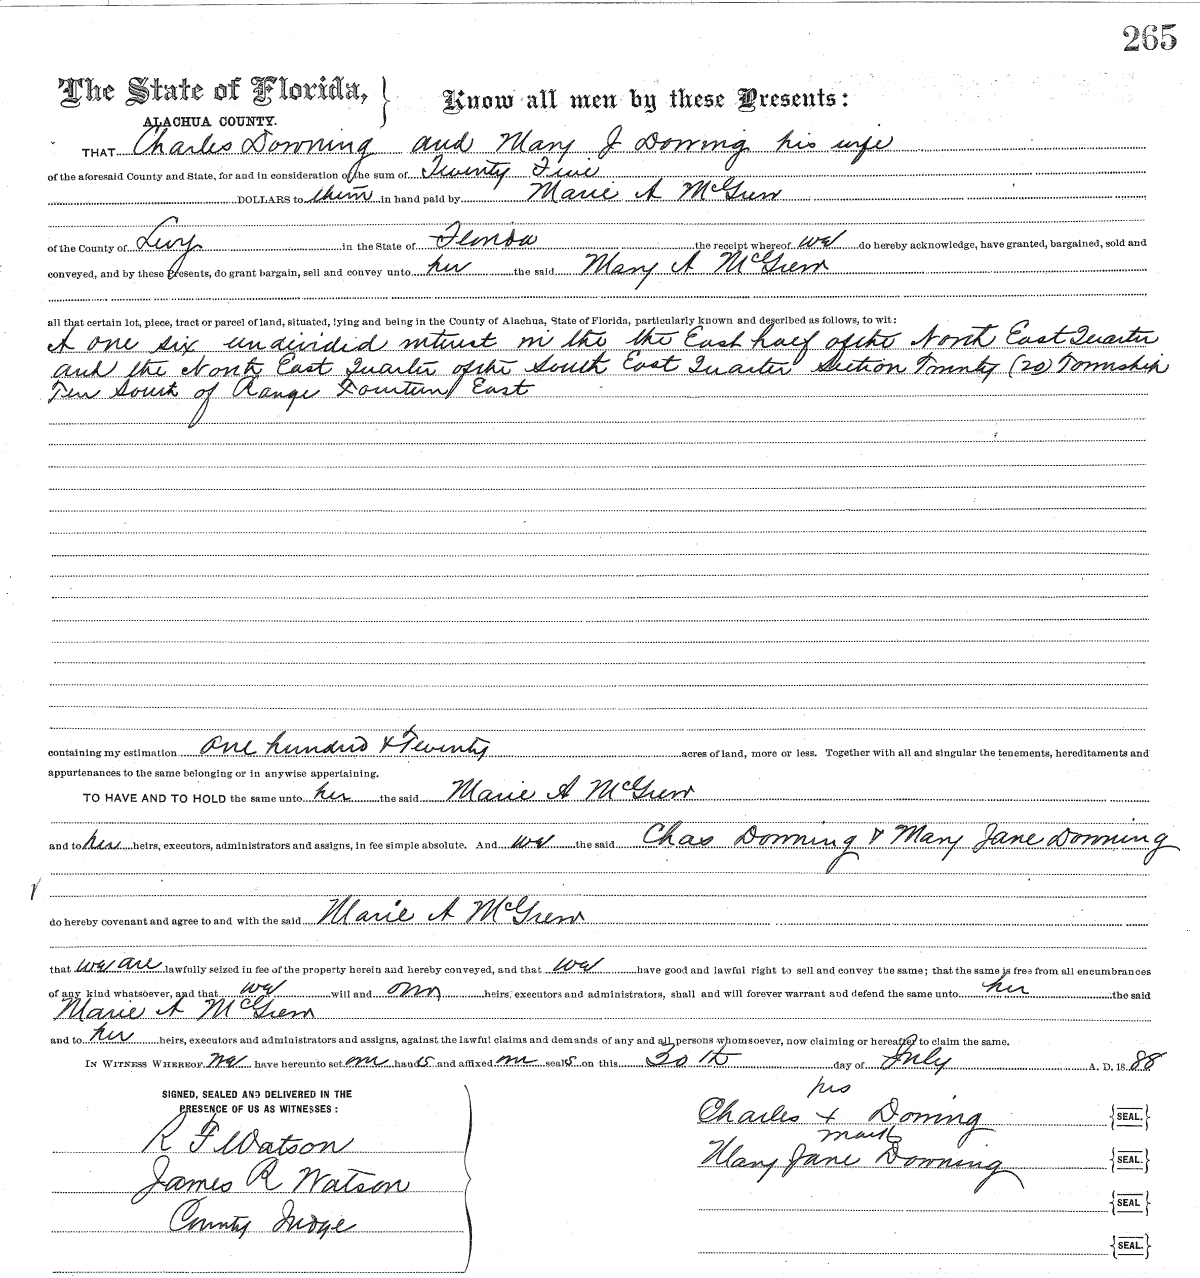 265
The State of Florida, } Know all men by these Presents:
ALACHUA COUNTY.
THAT Charles Downing and Mary J Downing his wife
of the aforesaid County and State, for and in consideration of the sum of Twenty Five
DOLLARS to them in hand paid by Marie A McGrew
of the County of Levy in the State of Florida the receipt whereof we do hereby acknowledge, have granted, bargained, sold and
conveyed, and by these Presents, do grant bargain, sell and convey unto her the said Mary A McGrew
all that certain lot, piece, tract or parcel of land, situated, lying and being in the County of Alachua, State of Florida, particularly known and described as follows, to wit:
A one six undivided interest in the the East half of the North East Quarter
and the North East Quarter of the South East Quarter Section Twenty (20) Township
Ten South of Range Fourteen East
containing my estimation one hundred & Twenty acres of land, more or less. Together with all and singular the tenements, hereditaments and
appurtenances to the same belonging or in anywise appertaining.
TO HAVE AND TO HOLD the same unto her the said Marie A McGrew
and to her heirs, executors, administrators and assigns, in fee simple absolute. And we the said Chas Downing & Mary Jane Downing
do hereby covenant and agree to and with the said Marie A McGrew
that we are lawfully seized in fee of the property herein and hereby conveyed, and that we have good and lawful right to sell and convey the same; that the same is free from all encumbrances
of any kind whatsoever, and that we will and our heirs, executors and administrators, shall and will forever warrant and defend the same unto her the said
Marie A McGrew
and to her heirs, executors and administrators and assigns, against the lawful claims and demands of any and all persons whomsoever, now claiming or hereafter to claim the same.
IN WITNESS WHEREOF, we have hereunto set our hands and affixed our seals on this 30th day of July A. D. 1888
SIGNED, SEALED AND DELIVERED IN THE
PRESENCE OF US AS WITNESSES:
R F Watson
James R Watson
County Judge
his
Charles + Doning {SEAL.}
mark
Mary Jane Downing {SEAL.}
{SEAL.}
{SEAL.}